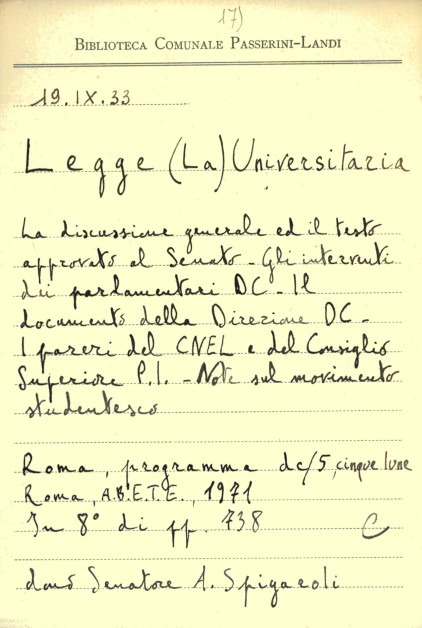 17)
BIBLIOTECA COMUNALE PASSERINI-LANDI
19.IX.33
Legge (La) Universitaria
La discussione generale ed il testo
approvato al Senato - Gli interventi
dei parlamentari DC - Il
documento della Direzione DC -
I pareri del CNEL e del Consiglio
Superiore P.I. - Note sul movimento
studentesco
Roma, programma dc/5, cinque lune
Roma, A.B.E.T.E., 1971
In 8° di pp. 738 C
dono Senatore A. Spigaroli